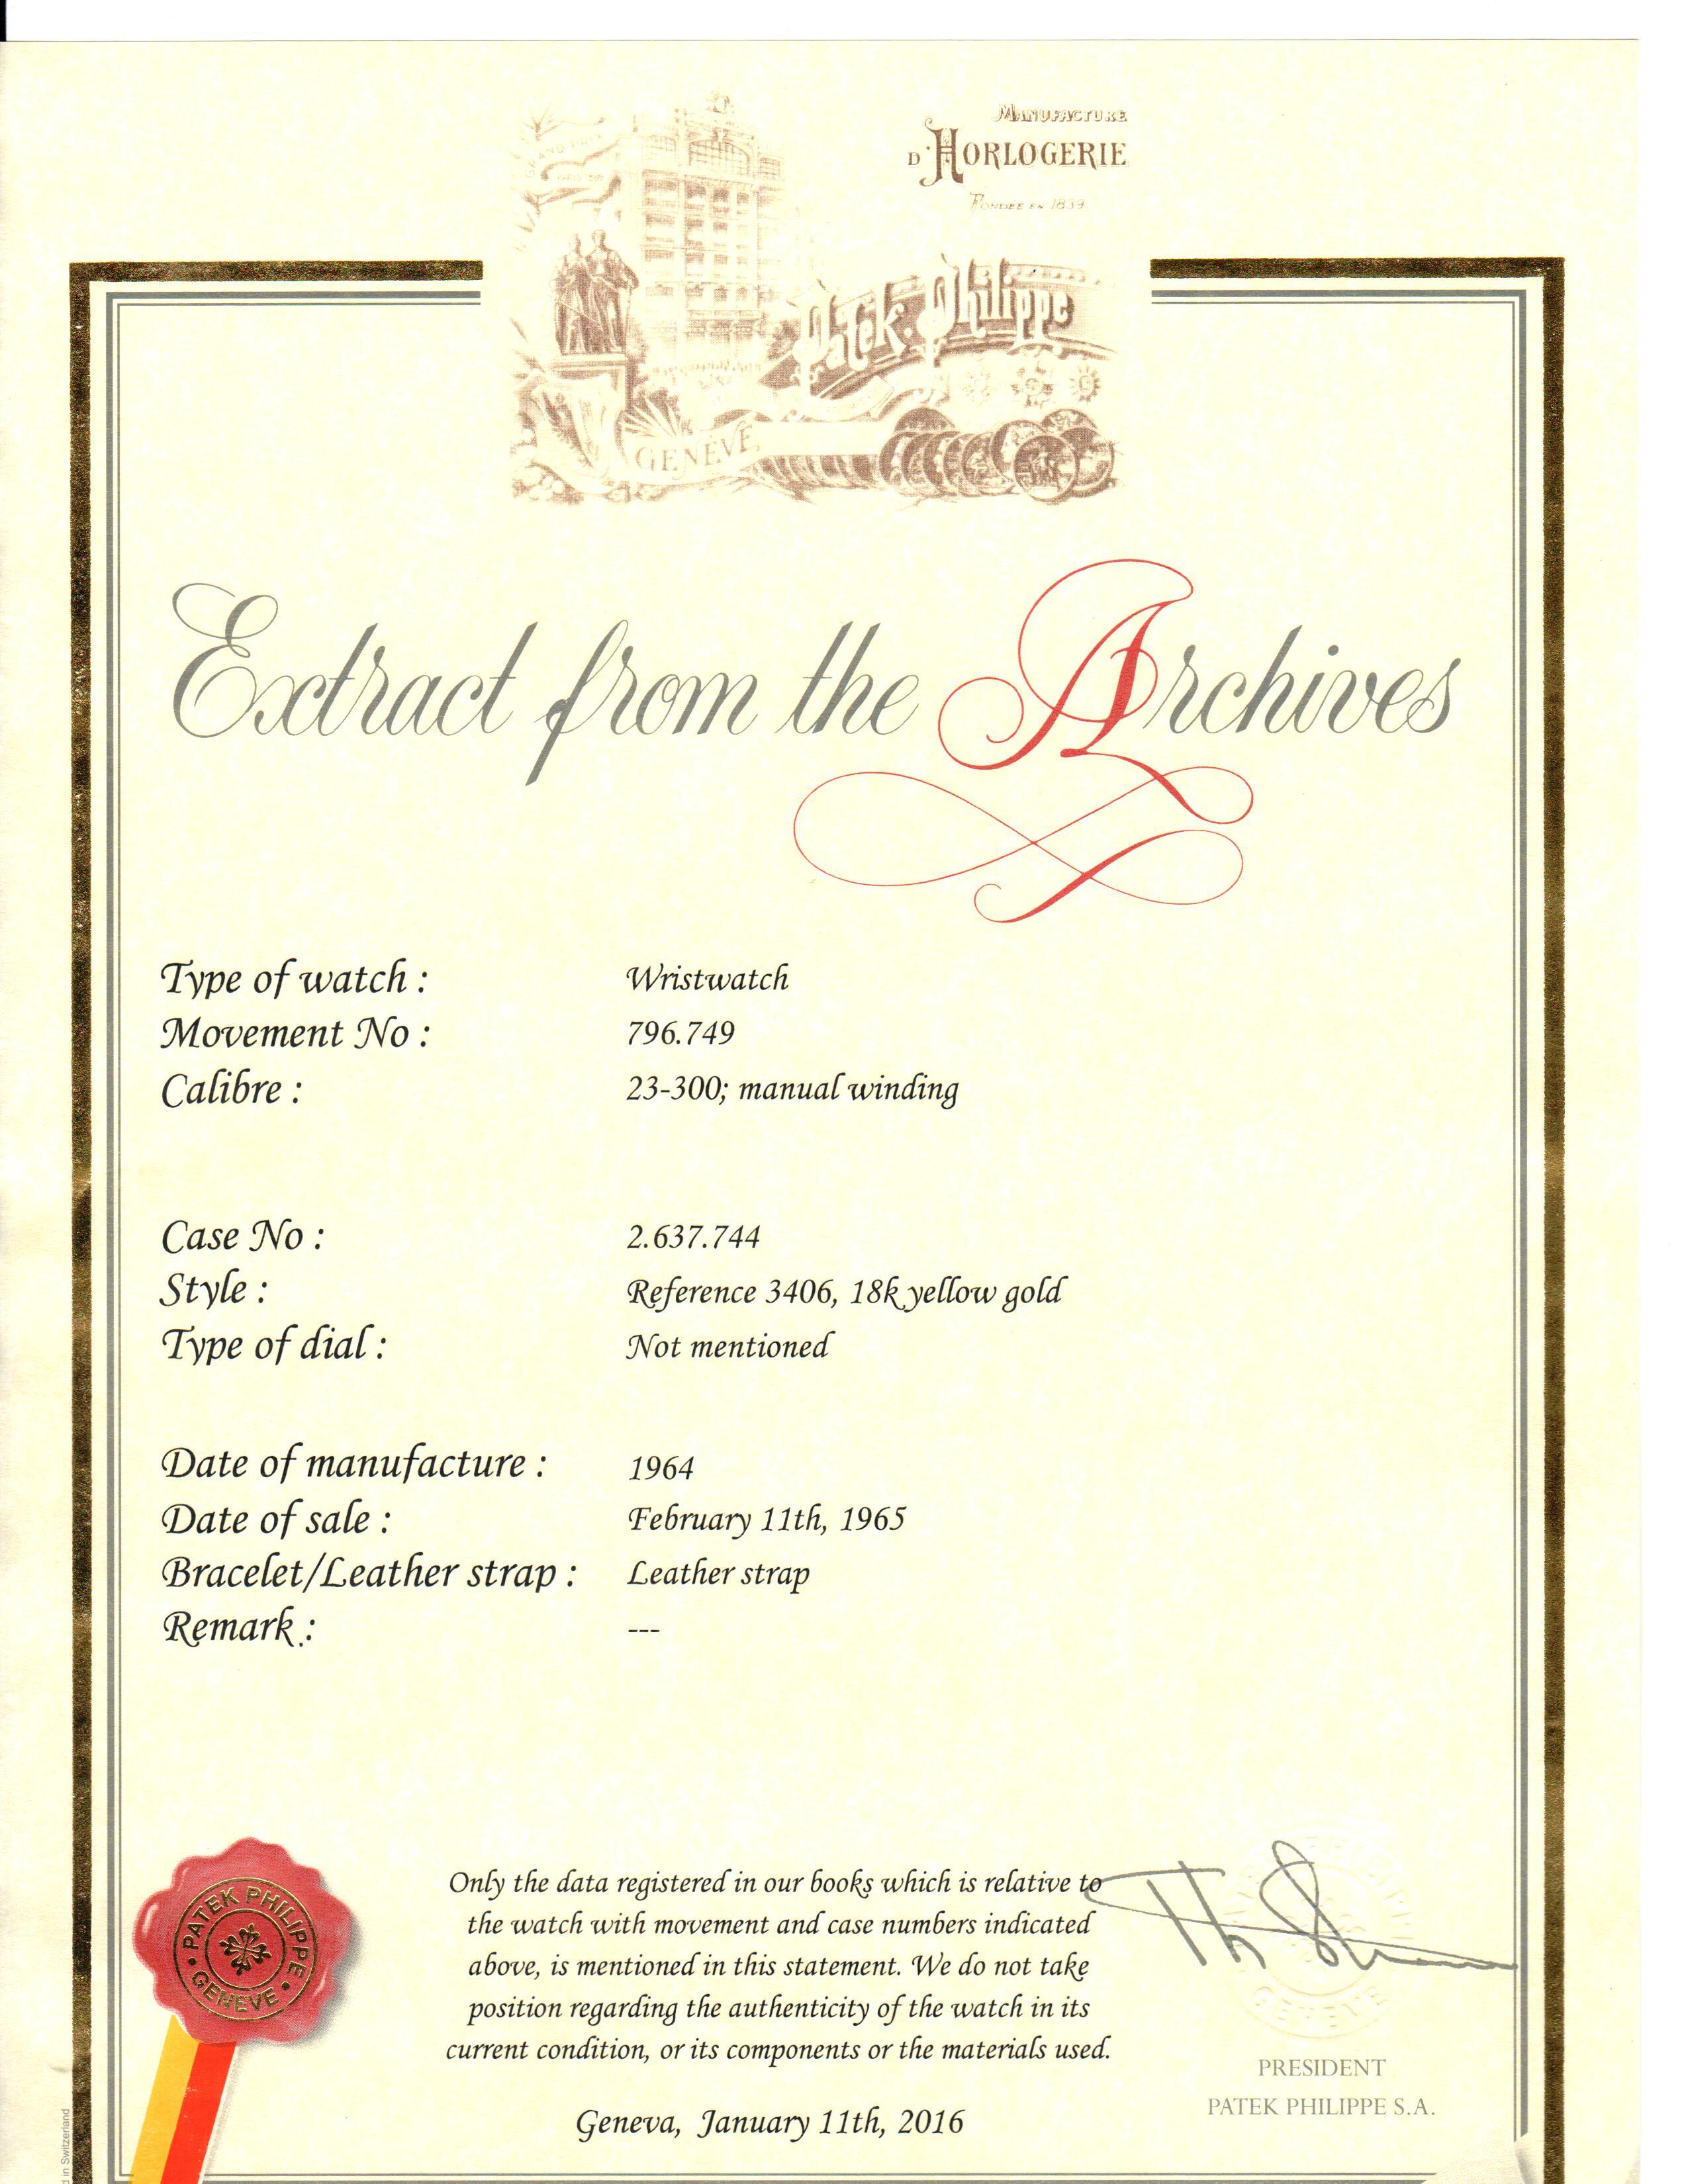 MANUFACTURE
D'HORLOGERIE
FONDEE EN 1839
Patek Philippe
GENÈVE
Extract from the Archives
Type of watch : Wristwatch
Movement No : 796.749
Calibre : 23-300; manual winding
Case No : 2.637.744
Style : Reference 3406, 18k yellow gold
Type of dial : Not mentioned
Date of manufacture : 1964
Date of sale : February 11th, 1965
Bracelet/Leather strap : Leather strap
Remark : ---
Only the data registered in our books which is relative to
the watch with movement and case numbers indicated
above, is mentioned in this statement. We do not take
position regarding the authenticity of the watch in its
current condition, or its components or the materials used.
Geneva, January 11th, 2016
PATEK PHILIPPE
GENEVE
GENEVE
PRESIDENT
PATEK PHILIPPE S.A.
d in Switzerland